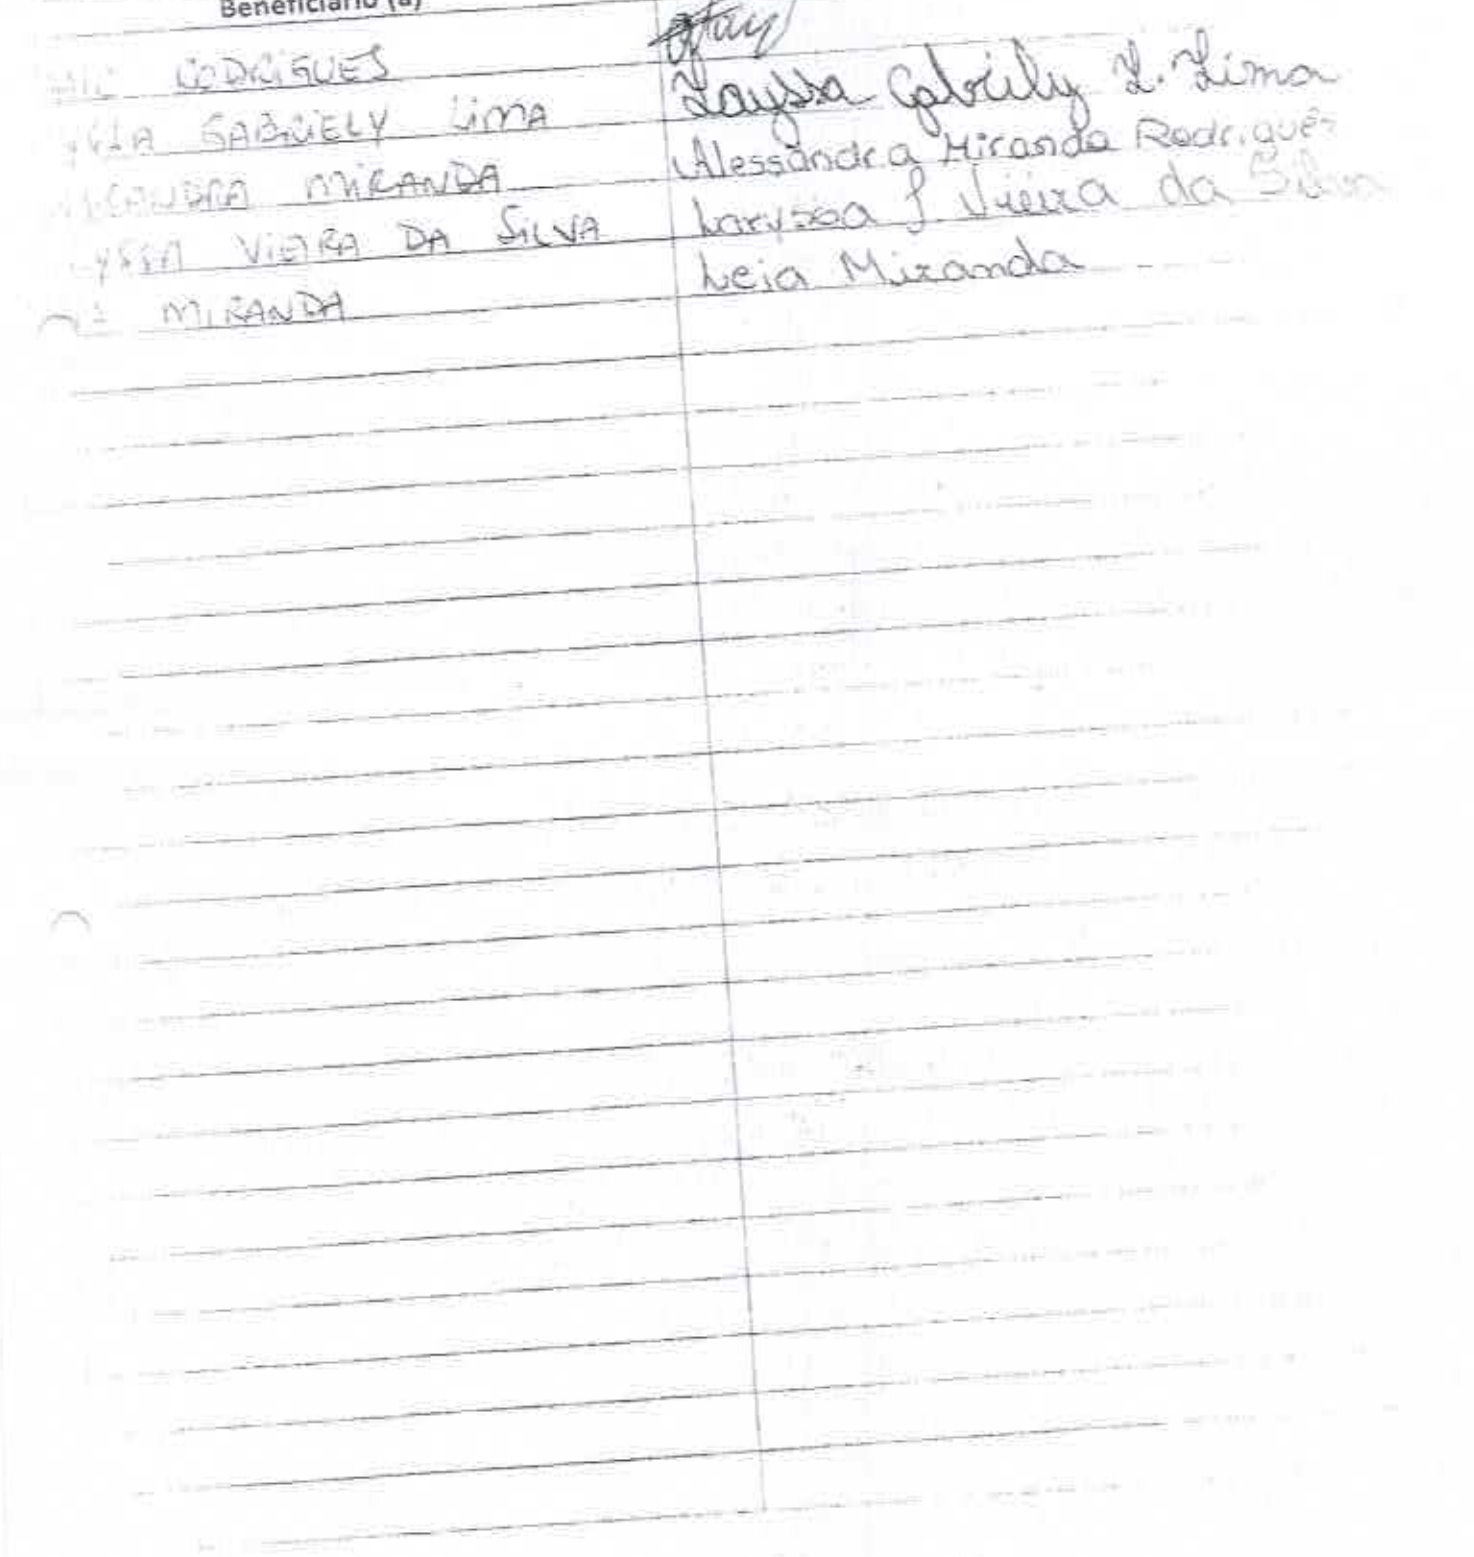 Beneficiário (a)
RODRIGUES
GABRIELY LIMA Layssa Gabriely L. Lima
MIRANDA Alessandra Miranda Rodrigues
VIEIRA DA SILVA Laryssa J Vieira da Silva
MIRANDA Leia Miranda